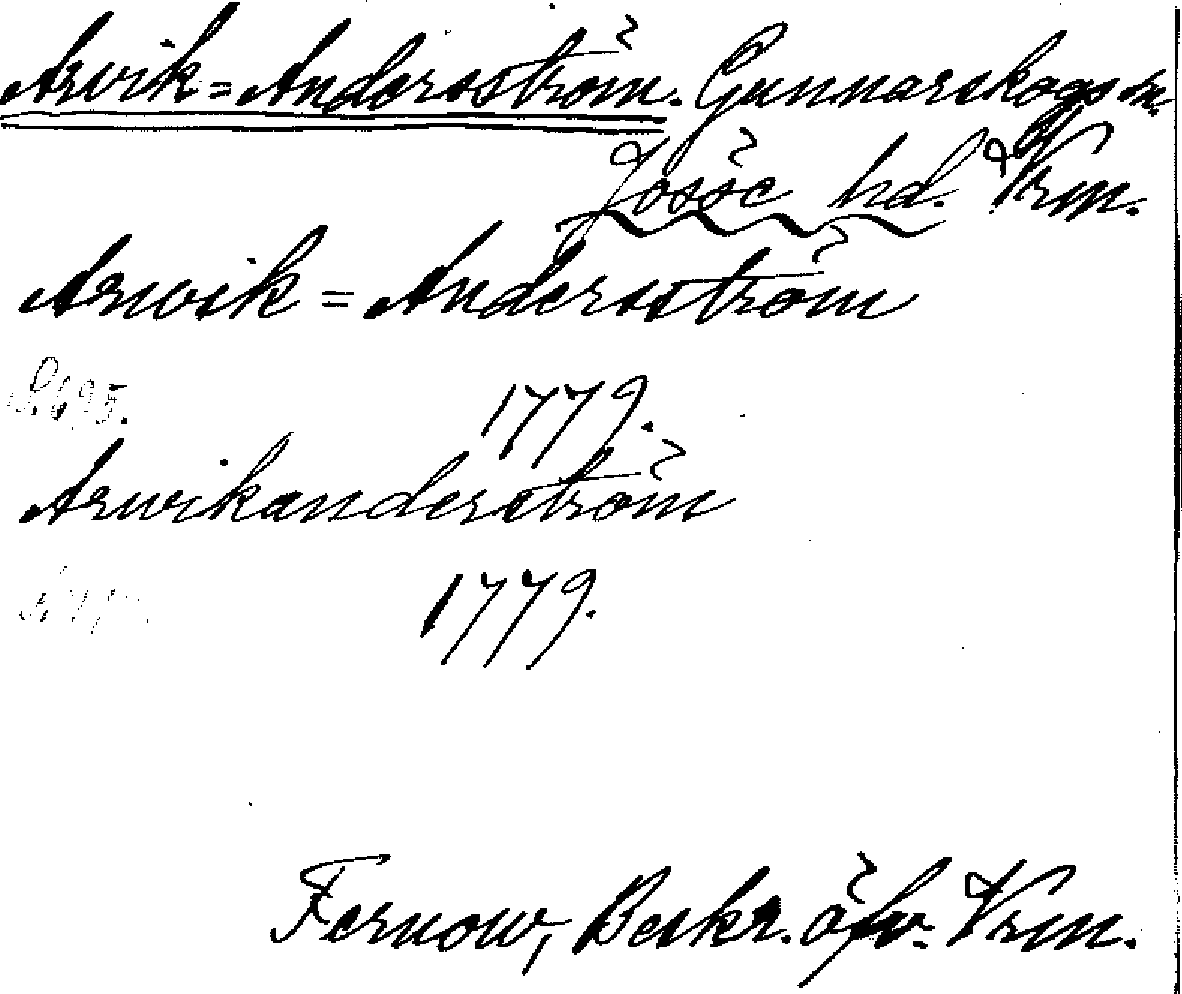 Arvik=Andersström. Gunnarskogs sn.
Jösse hd. Vrm.
Arwik=Andersström
S. 695. 1779.
Arwikanderström
1779.
Fernow, Beskr. öfv. Vrm.